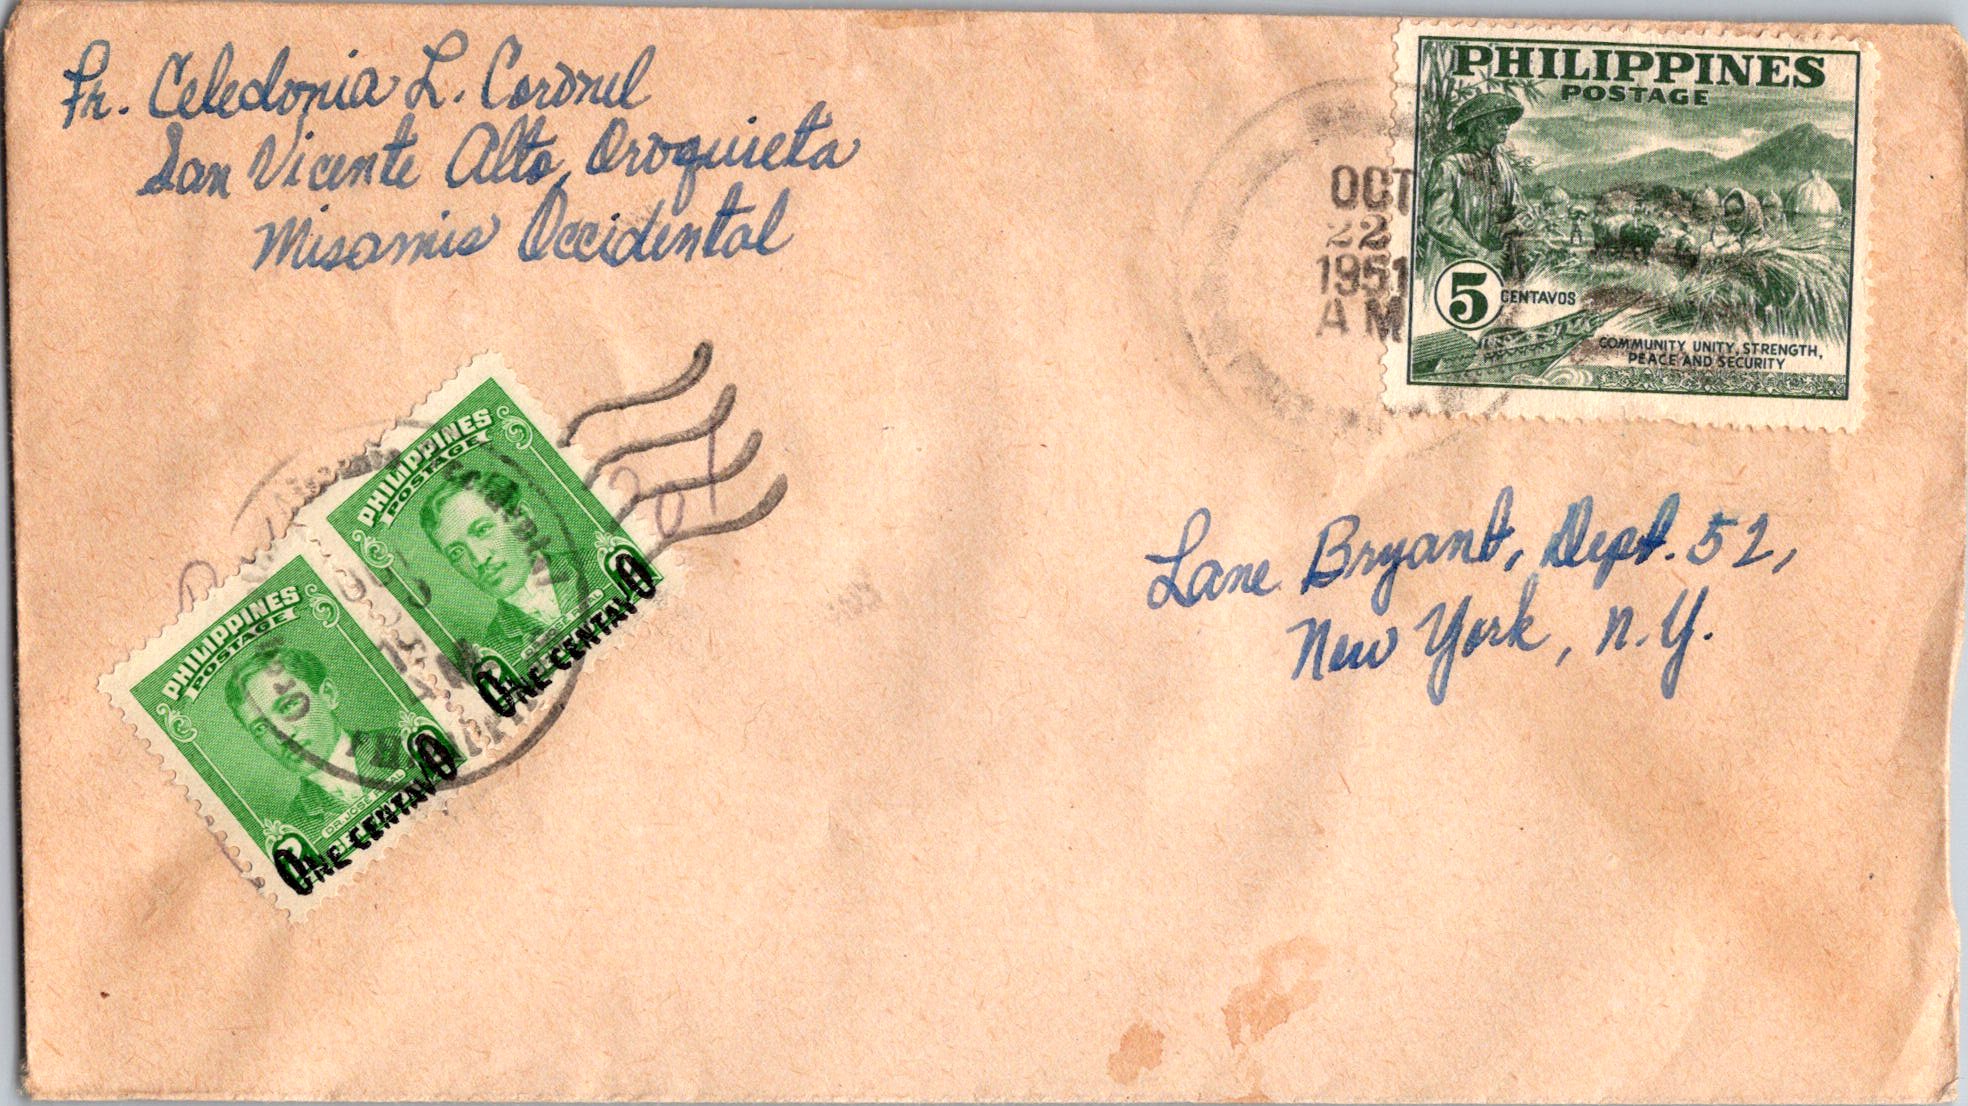 Fr. Celedonia L. Coronel
San Vicente Alto, Oroquieta
Misamis Occidental
PHILIPPINES
POSTAGE
5 CENTAVOS
COMMUNITY UNITY, STRENGTH,
PEACE AND SECURITY
OCT
22
1951
AM
PHILIPPINES
POSTAGE
DR. JOSE RIZAL
ONE CENTAVO
PHILIPPINES
POSTAGE
DR. JOSE RIZAL
ONE CENTAVO
Lane Bryant, Dept. 52,
New York, N.Y.